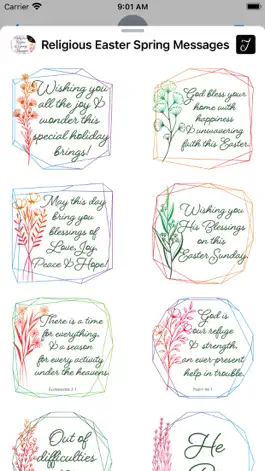 Carrier
9:01 AM
Religious Easter Spring Messages
Wishing you
all the joy &
wonder this
special holiday
brings!
God bless your
home with
happiness
& unwavering
faith this Easter.
May this day
bring you
blessings of
Love, Joy,
Peace & Hope!
Wishing you
His Blessings
on this
Easter Sunday.
There is a time
for everything,
& a season
for every activity
under the heavens.
Ecclesiastes 3:1
God is
our refuge
& strength,
an ever-present
help in trouble.
Psalm 46:1
Out of
difficulties
He